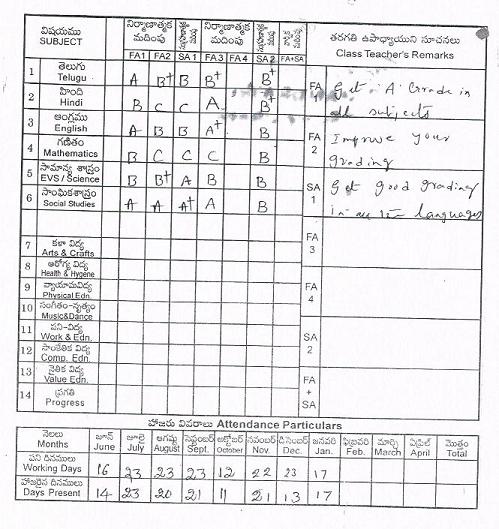 విషయము నిర్మాణాత్మక మదింపు నిర్మాణాత్మక మదింపు తరగతి ఉపాధ్యాయుని సూచనలు
SUBJECT FA1 FA2 SA1 FA3 FA4 SA2 FA+SA Class Teacher's Remarks
1 తెలుగు Telugu A B+ B B+ B+
2 హింది Hindi B C C A B+
3 ఆంగ్లము English A B B A+ B
4 గణితం Mathematics B C C C B
5 సామాన్య శాస్త్రం EVS / Science B B+ A B B
6 సాంఘికశాస్త్రం Social Studies A A A+ A B
7 కళా విద్య Arts & Crafts
8 ఆరోగ్య విద్య Health & Hygene
9 వ్యాయామవిద్య Physical Edn.
10 సంగీతం-నృత్యం Music&Dance
11 పని-విద్య Work & Edn.
12 సాంకేతిక విద్య Comp. Edn.
13 నైతిక విద్య Value Edn.
14 ప్రగతి Progress
FA 1 Get 'A' Grade in
all subjects
FA 2 Improve your
grading
SA 1 Get good grading
in languages
FA 3
FA 4
SA 2
FA + SA
హాజరు వివరాలు Attendance Particulars
నెలలు జూన్ జూలై ఆగష్టు సెప్టెంబర్ అక్టోబర్ నవంబర్ డిసెంబర్ జనవరి ఫిబ్రవరి మార్చి ఏప్రిల్ మొత్తం
Months June July August Sept. Oct. Nov. Dec. Jan. Feb. March April Total
పని దినములు
Working Days 16 23 23 23 12 22 23 17
హాజరైన దినములు
Days Present 14 23 20 21 11 21 13 17